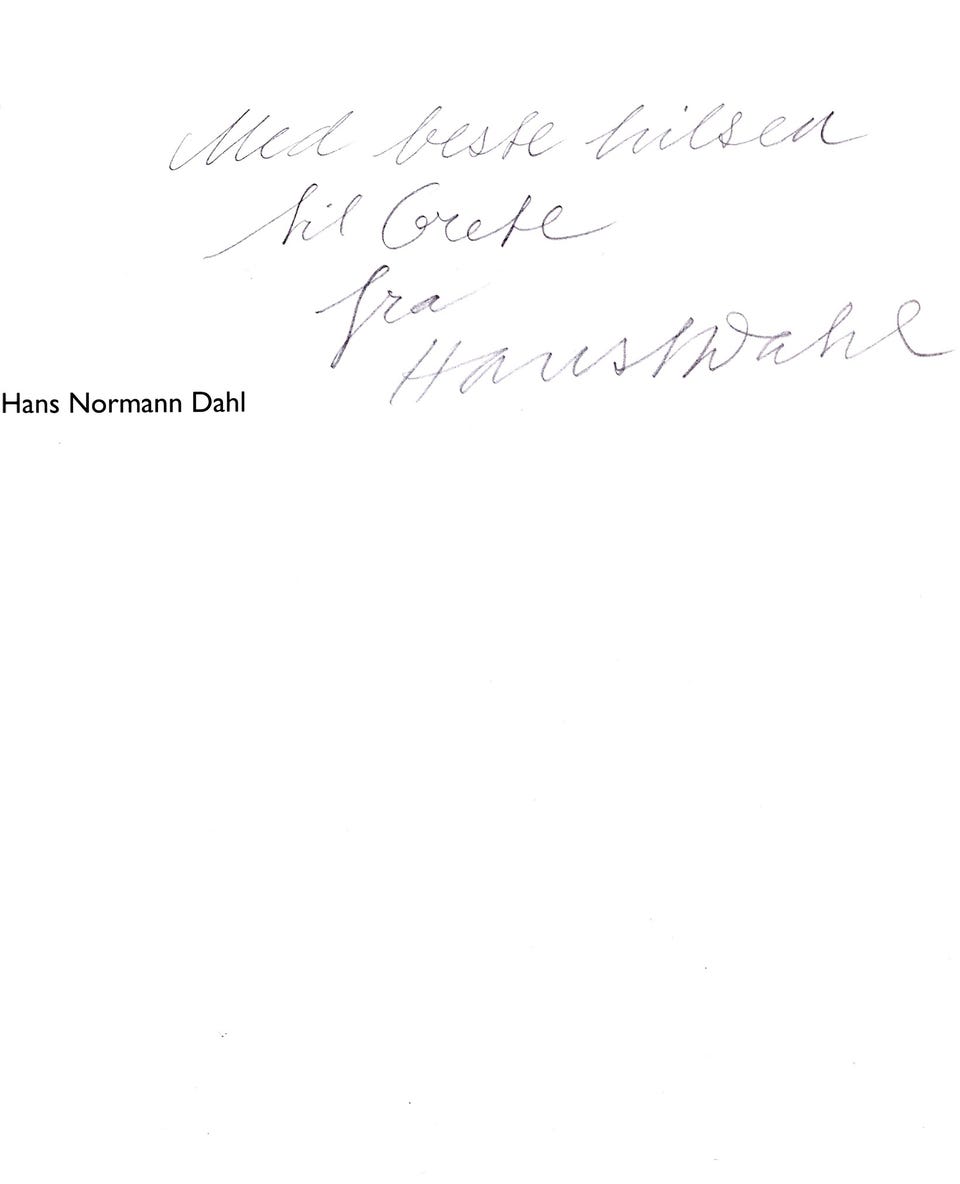 Med beste hilsen
til Grete
fra
Hans N Dahl
Hans Normann Dahl